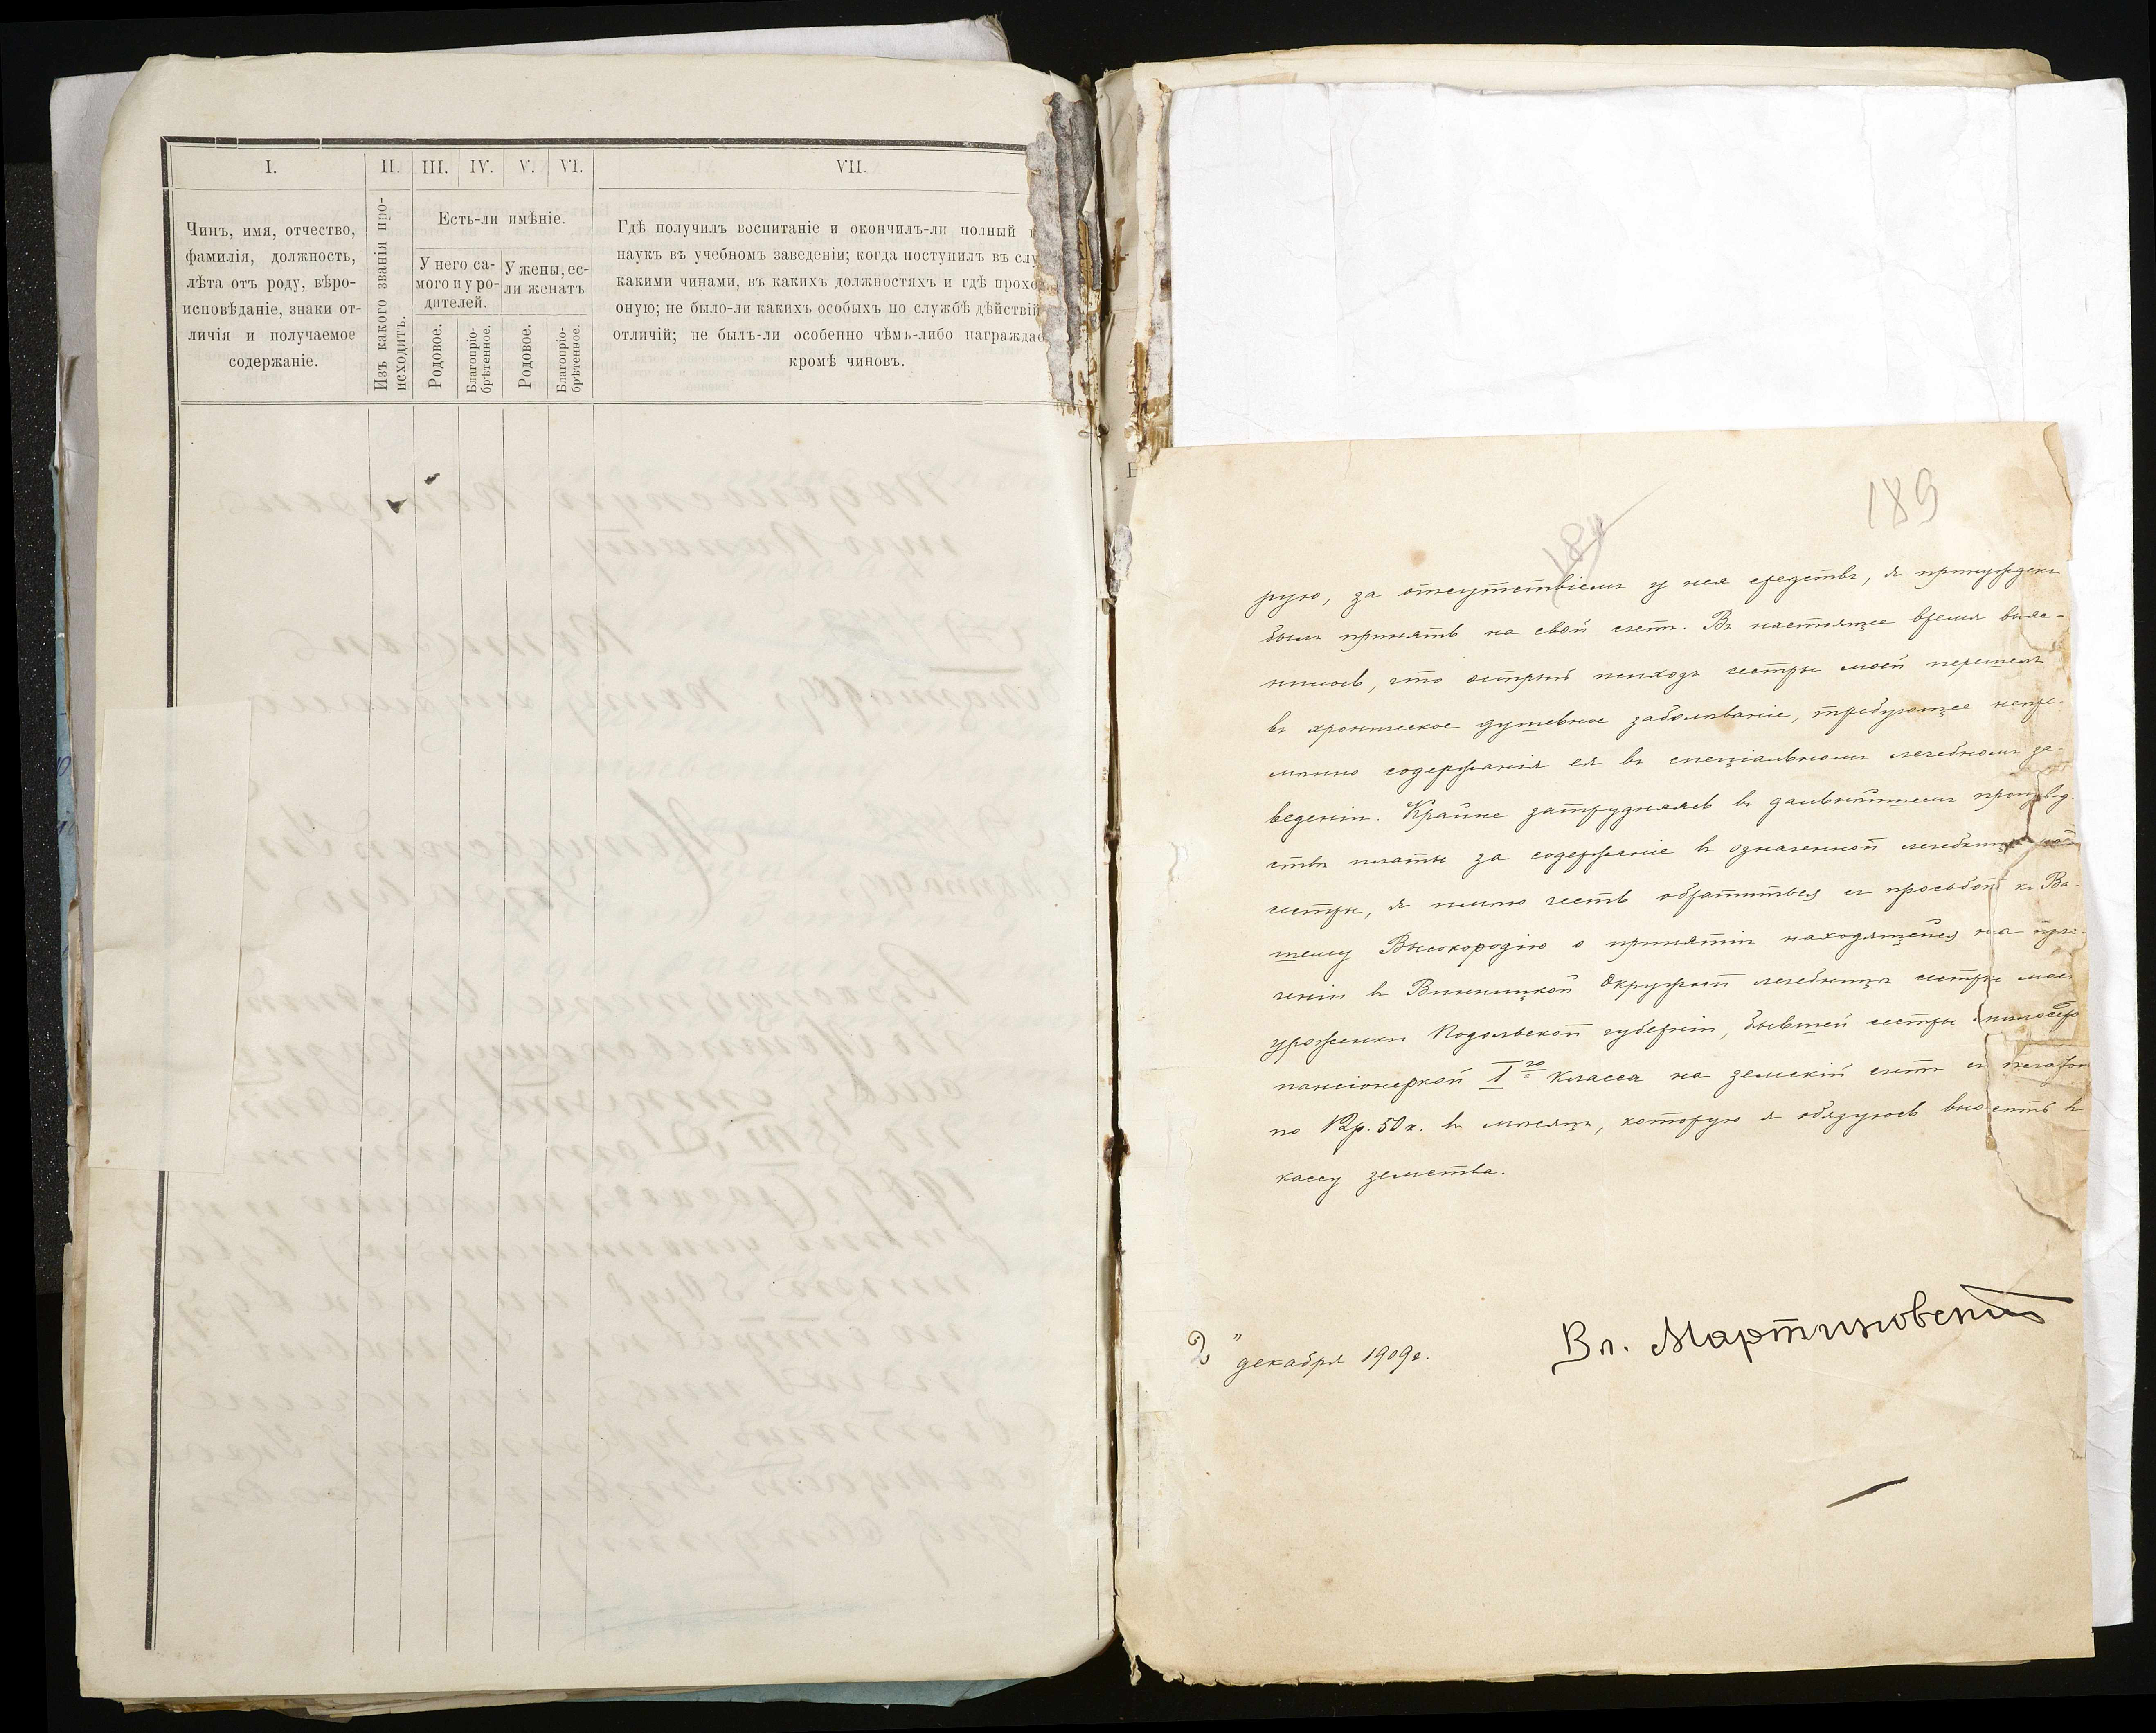 I.
II.
III.
IV.
V.
VI.
VII.
Чинъ, имя, отчество,
фамилія, должность,
лѣта отъ роду, вѣро-
исповѣданіе, знаки от-
личія и получаемое
содержаніе.
Изъ какого званія про-
исходитъ.
Есть-ли имѣніе.
У него са-
мого и у ро-
дителей.
У жены, ес-
ли женатъ
Родовое.
Благопріо-
брѣтенное.
Родовое.
Благопріо-
брѣтенное.
Гдѣ получилъ воспитаніе и окончилъ-ли полный
наукъ въ учебномъ заведеніи; когда поступилъ въ слу
какими чинами, въ какихъ должностяхъ и гдѣ прохо
оную; не было-ли какихъ особыхъ по службѣ дѣйствій
отличій; не былъ-ли особенно чѣмъ-либо награждае
кромѣ чиновъ.
189
184
рую, за отсутствіемъ у нея средствъ, я принужденъ
былъ принять на свой счетъ. Въ настоящее время выяс-
нилось, что острый психозъ сестры моей перешелъ
въ хроническое душевное заболѣваніе, требующее непре-
мѣнно содержанія ея въ спеціальномъ лечебномъ за-
веденіи. Крайне затрудняясь въ дальнѣйшемъ производ-
ствѣ платы за содержаніе въ означенной лечебницѣ моей
сестры, я имѣю честь обратиться съ просьбой къ Ва-
шему Высокородію о принятіи находящейся на изле-
ченіи въ Винницкой Окружной лечебницѣ сестры моей
уроженки Подольской губерніи, бывшей сестры милосер
пансіонеркой I го класса на земскій счетъ съ платою
по 12р. 50к. въ мѣсяцъ, которую я обязуюсь вносить въ
кассу земства.
2 " декабря 1909г.
Вл. Мартиновскій